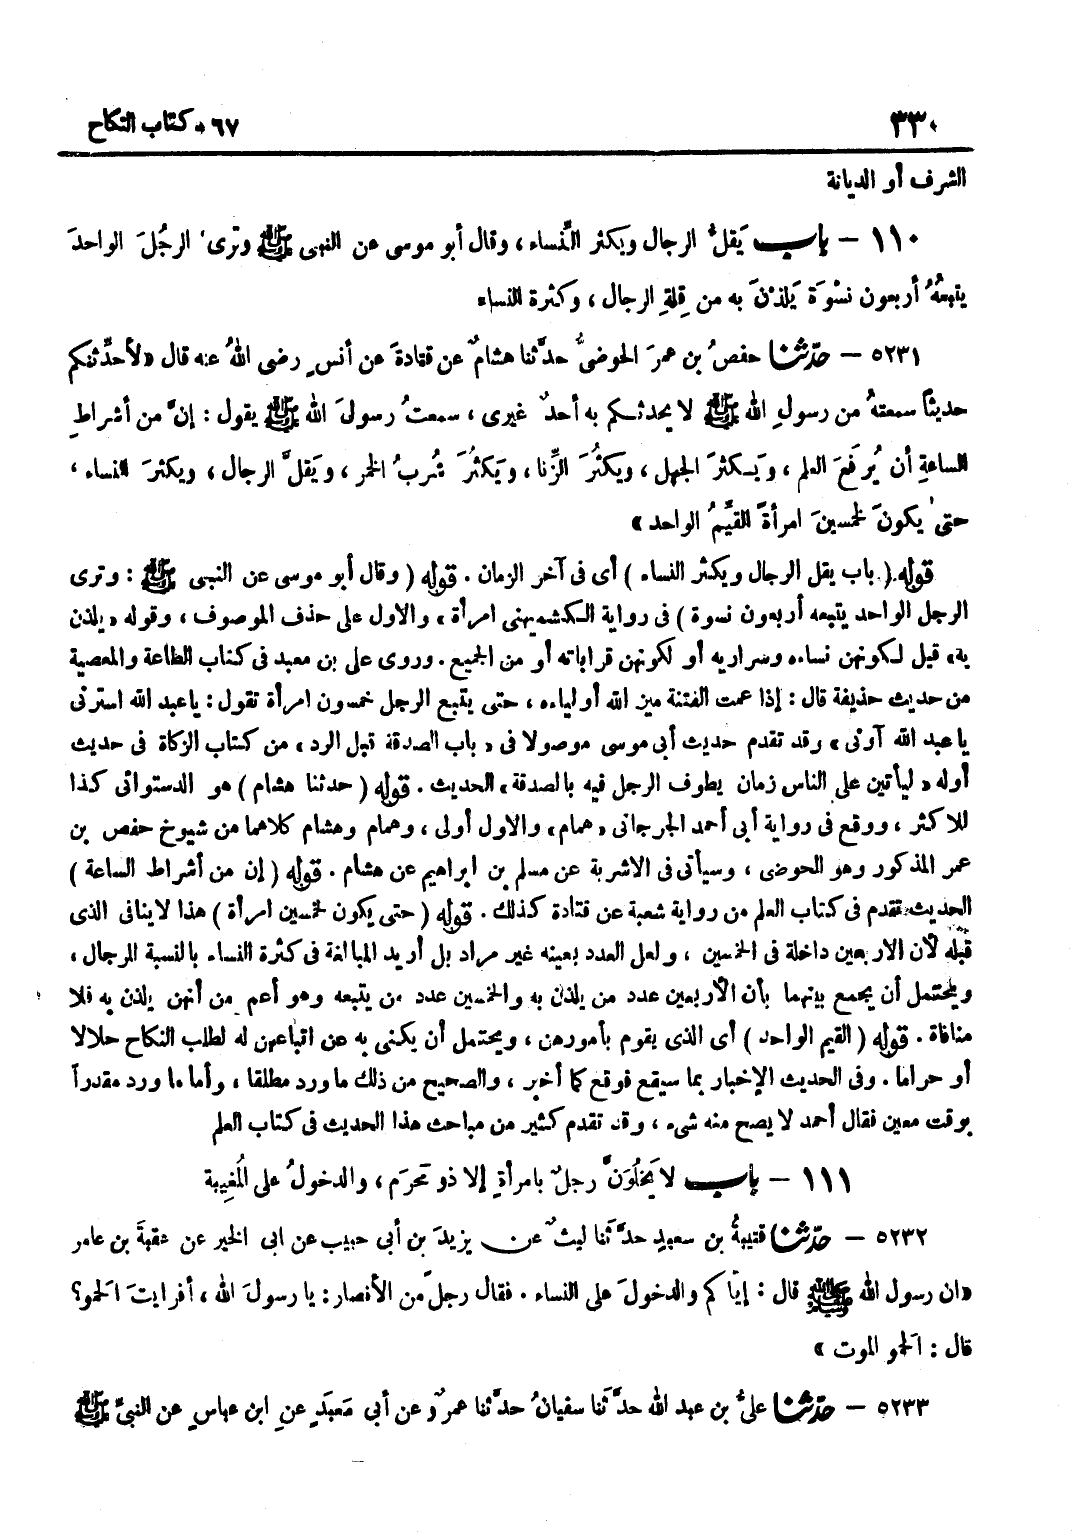 ٣٣٠ ٦٧ - كتاب النكاح
الشرف أو الديانة
١١٠ - باب يَقلُّ الرجال ويكثر النِّساء ، وقال أبو موسى عن النبى ﷺ وترى الرجُلَ الواحدَ
يتبعهُ أربعون نسْوَة يَلذْنَ به من قِلةِ الرجال ، وكثرة النساء
٥٢٣١ - حدّثنا حفصُ بن عمرَ الحوضىُّ حدَّثنا هشامٌ عن قتادةَ عن أنسٍ رضى اللهُ عنه قال « لأحدِّثنكم
حديثاً سمعتهُ من رسولِ الله ﷺ لا يحدثكم به أحدٌ غيرى ، سمعتُ رسولَ الله ﷺ يقول : إنَّ من أشراطِ
الساعةِ أن يُرفَعَ العلم ، وَيَكثرَ الجهل ، ويكثُرَ الزِّنا ، ويَكثُرَ شُربُ الخمر ، ويَقلَّ الرجال ، ويكثرَ النساء ،
حتى يكونَ لخمسينَ امرأةً القيِّمُ الواحد »
قوله ( باب يقل الرجال ويكثر النساء ) أى فى آخر الزمان . قوله ( وقال أبو موسى عن النبى ﷺ : وترى
الرجل الواحد يتبعه أربعون نسوة ) فى رواية الكشميهنى امرأة ، والاول على حذف الموصوف ، وقوله « يلذن
به » قيل لكونهن نساءه وسراريه أو لكونهن قراباته أو من الجميع . وروى على بن معبد فى كتاب الطاعة والمعصية
من حديث حذيفة قال : إذا عمت الفتنة ميز الله أولياءه ، حتى يتبع الرجل خمسون امرأة تقول : يا عبد الله استرنى
يا عبد الله آونى » وقد تقدم حديث أبى موسى موصولا فى « باب الصدقة قبل الرد » من كتاب الزكاة فى حديث
أوله « ليأتين على الناس زمان يطوف الرجل فيه بالصدقة » الحديث . قوله ( حدثنا هشام ) هو الدستوائى كذا
للاكثر ، ووقع فى رواية أبى أحمد الجرجانى « همام » والاول أولى ، وهمام وهشام كلاهما من شيوخ حفص بن
عمر المذكور وهو الحوضى ، وسيأتى فى الاشربة عن مسلم بن ابراهيم عن هشام . قوله ( إن من أشراط الساعة )
الحديث تقدم فى كتاب العلم من رواية شعبة عن قتادة كذلك . قوله ( حتى يكون لخمسين امرأة ) هذا لاينافى الذى
قبله لأن الاربعين داخلة فى الخمسين ، ولعل العدد بعينه غير مراد بل أريد المبالغة فى كثرة النساء بالنسبة للرجال ،
ويحتمل أن يجمع بينهما بأن الأربعين عدد من يلذن به والخمسين عدد من يتبعه وهو أعم من أنهن يلذن به فلا
منافاة . قوله ( القيم الواحد ) أى الذى يقوم بأمورهن ، ويحتمل أن يكنى به عن اتباعهن له لطلب النكاح حلالا
أو حراما . وفى الحديث الإخبار بما سيقع فوقع كما أخبر ، والصحيح من ذلك ما ورد مطلقا ، وأما ما ورد مقدراً
بوقت معين فقال أحمد لا يصح منه شىء ، وقد تقدم كثير من مباحث هذا الحديث فى كتاب العلم
١١١ - باب لا يَخلُوَنَّ رجلٌ بامرأةٍ إلا ذو مَحرَم ، والدخولُ على المُغِيبة
٥٢٣٢ - حدّثنا قتيبةُ بن سعيدٍ حدَّثنا ليثٌ عن يزيدَ بن أبى حبيب عن ابى الخير عن عقبةَ بن عامر
« ان رسول الله ﷺ قال : إيّاكم والدخولَ على النساء . فقال رجلٌ من الأنصار : يا رسولَ الله ، أفرايتَ الحمو؟
قال : الحمو الموت »
٥٢٣٣ - حدّثنا علىُّ بن عبد الله حدَّثنا سفيانُ حدَّثنا عمرٌو عن أبى مَعبَدٍ عنِ ابن عباسٍ عن النبىِّ ﷺ